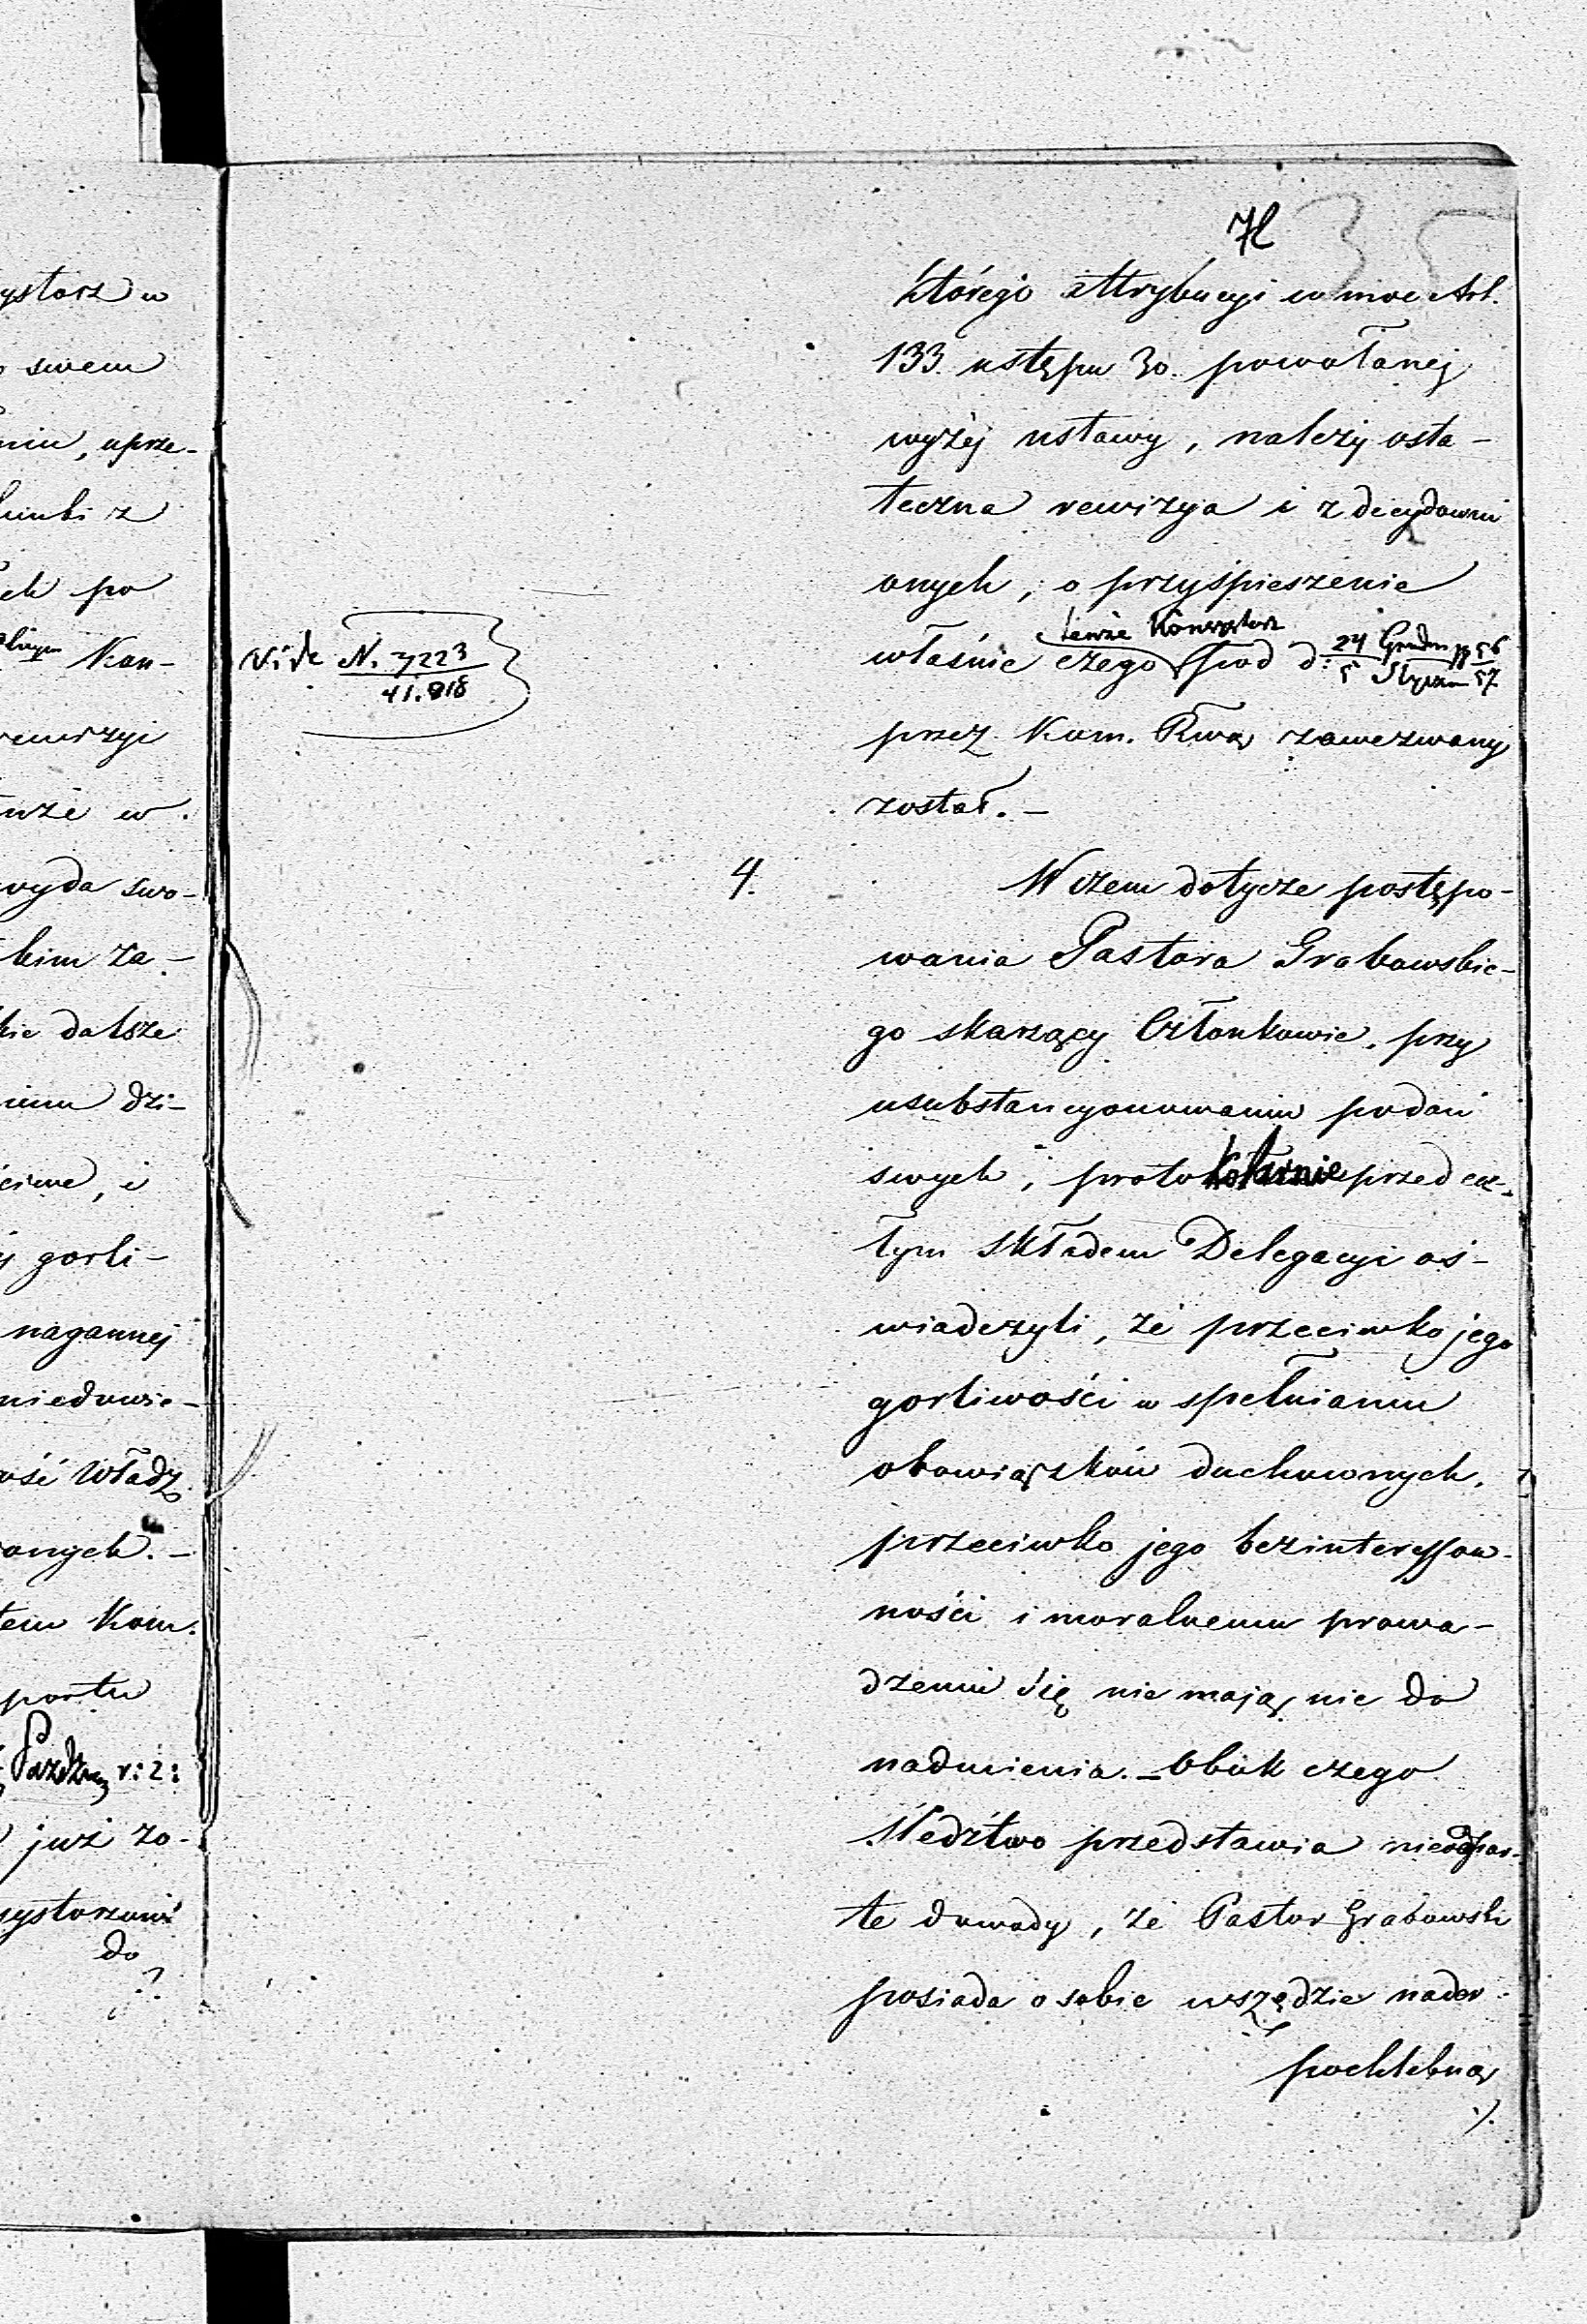 ystorz w
swem
niu, uprze-
ek po
Kon-
rewizyi
wyda swo-
kim za-
kie dalsze
dzi-
gorli-
nagannej
niedowie-
Władz
onych. –
tem Kom.
portu
Paźdz. r: z:
już zo-
systorzowi
do
którego attrybucyi w moc Art.
133. ustępu 3o. powołanej
wyżej ustawy, należy osta-
teczna rewizya i zdecydowni
onych, o przyśpieszenie
tenże Konsystorz
właśnie czego pod d: 24 Grudn 1856 / 5 Styczn 57
Vide N. 7223 / 41.818
przez Kom. Rwą zawezwany
został. –
4. W czem dotycze postępo-
wania Pastora Grabowskie-
go skarzący Członkowie, przy
usubstancyonowaniu podań
swych, protokólarnie przed ca-
łym składem Delegacyi oś-
wiadczyli, że przeciwko jego
gorliwości w spełnianiu
obowiązków duchownych,
przeciwko jego bezinteressow-
ności i moralnemu prowa-
dzeniu się nie mają nic do
nadmienia. – Obok czego
śledztwo przedstawia nieodpar-
te dowody, że Pastor Grabowski
posiada o sobie wszędzie nader
pochlebną
./.